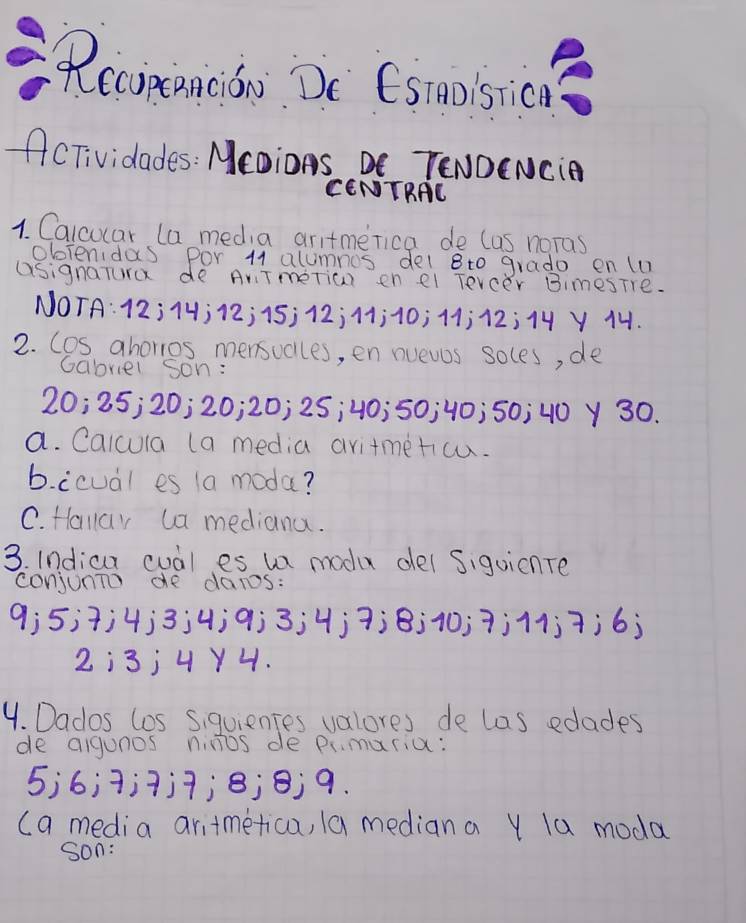 RECUPERACIÓN DE ESTADÍSTICA
ACTividades: MEDIDAS DE TENDENCIA
CENTRAL
1. Calcular la media aritmética de las notas
obtenidas por 11 alumnos del 8to grado en la
asignatura de Aritmética en el Tercer Bimestre.
NOTA: 12; 14; 12; 15; 12; 11; 10; 11; 12; 14 y 14.
2. Los ahorros mensuales, en nuevos soles, de
Gabriel son:
20; 25; 20; 20; 20; 25; 40; 50; 40; 50; 40 y 30.
a. Calcula la media aritmética.
b. ¿cuál es la moda?
C. Hallar la mediana.
3. Indica cuál es la moda del Siguiente
conjunto de datos:
9; 5; 7; 4; 3; 4; 9; 3; 4; 7; 8; 10; 7; 11; 7; 6;
2; 3; 4 y 4.
4. Dados los siguientes valores de las edades
de algunos niños de primaria:
5; 6; 7; 7; 7; 8; 8; 9.
La media aritmética, la mediana y la moda
son: